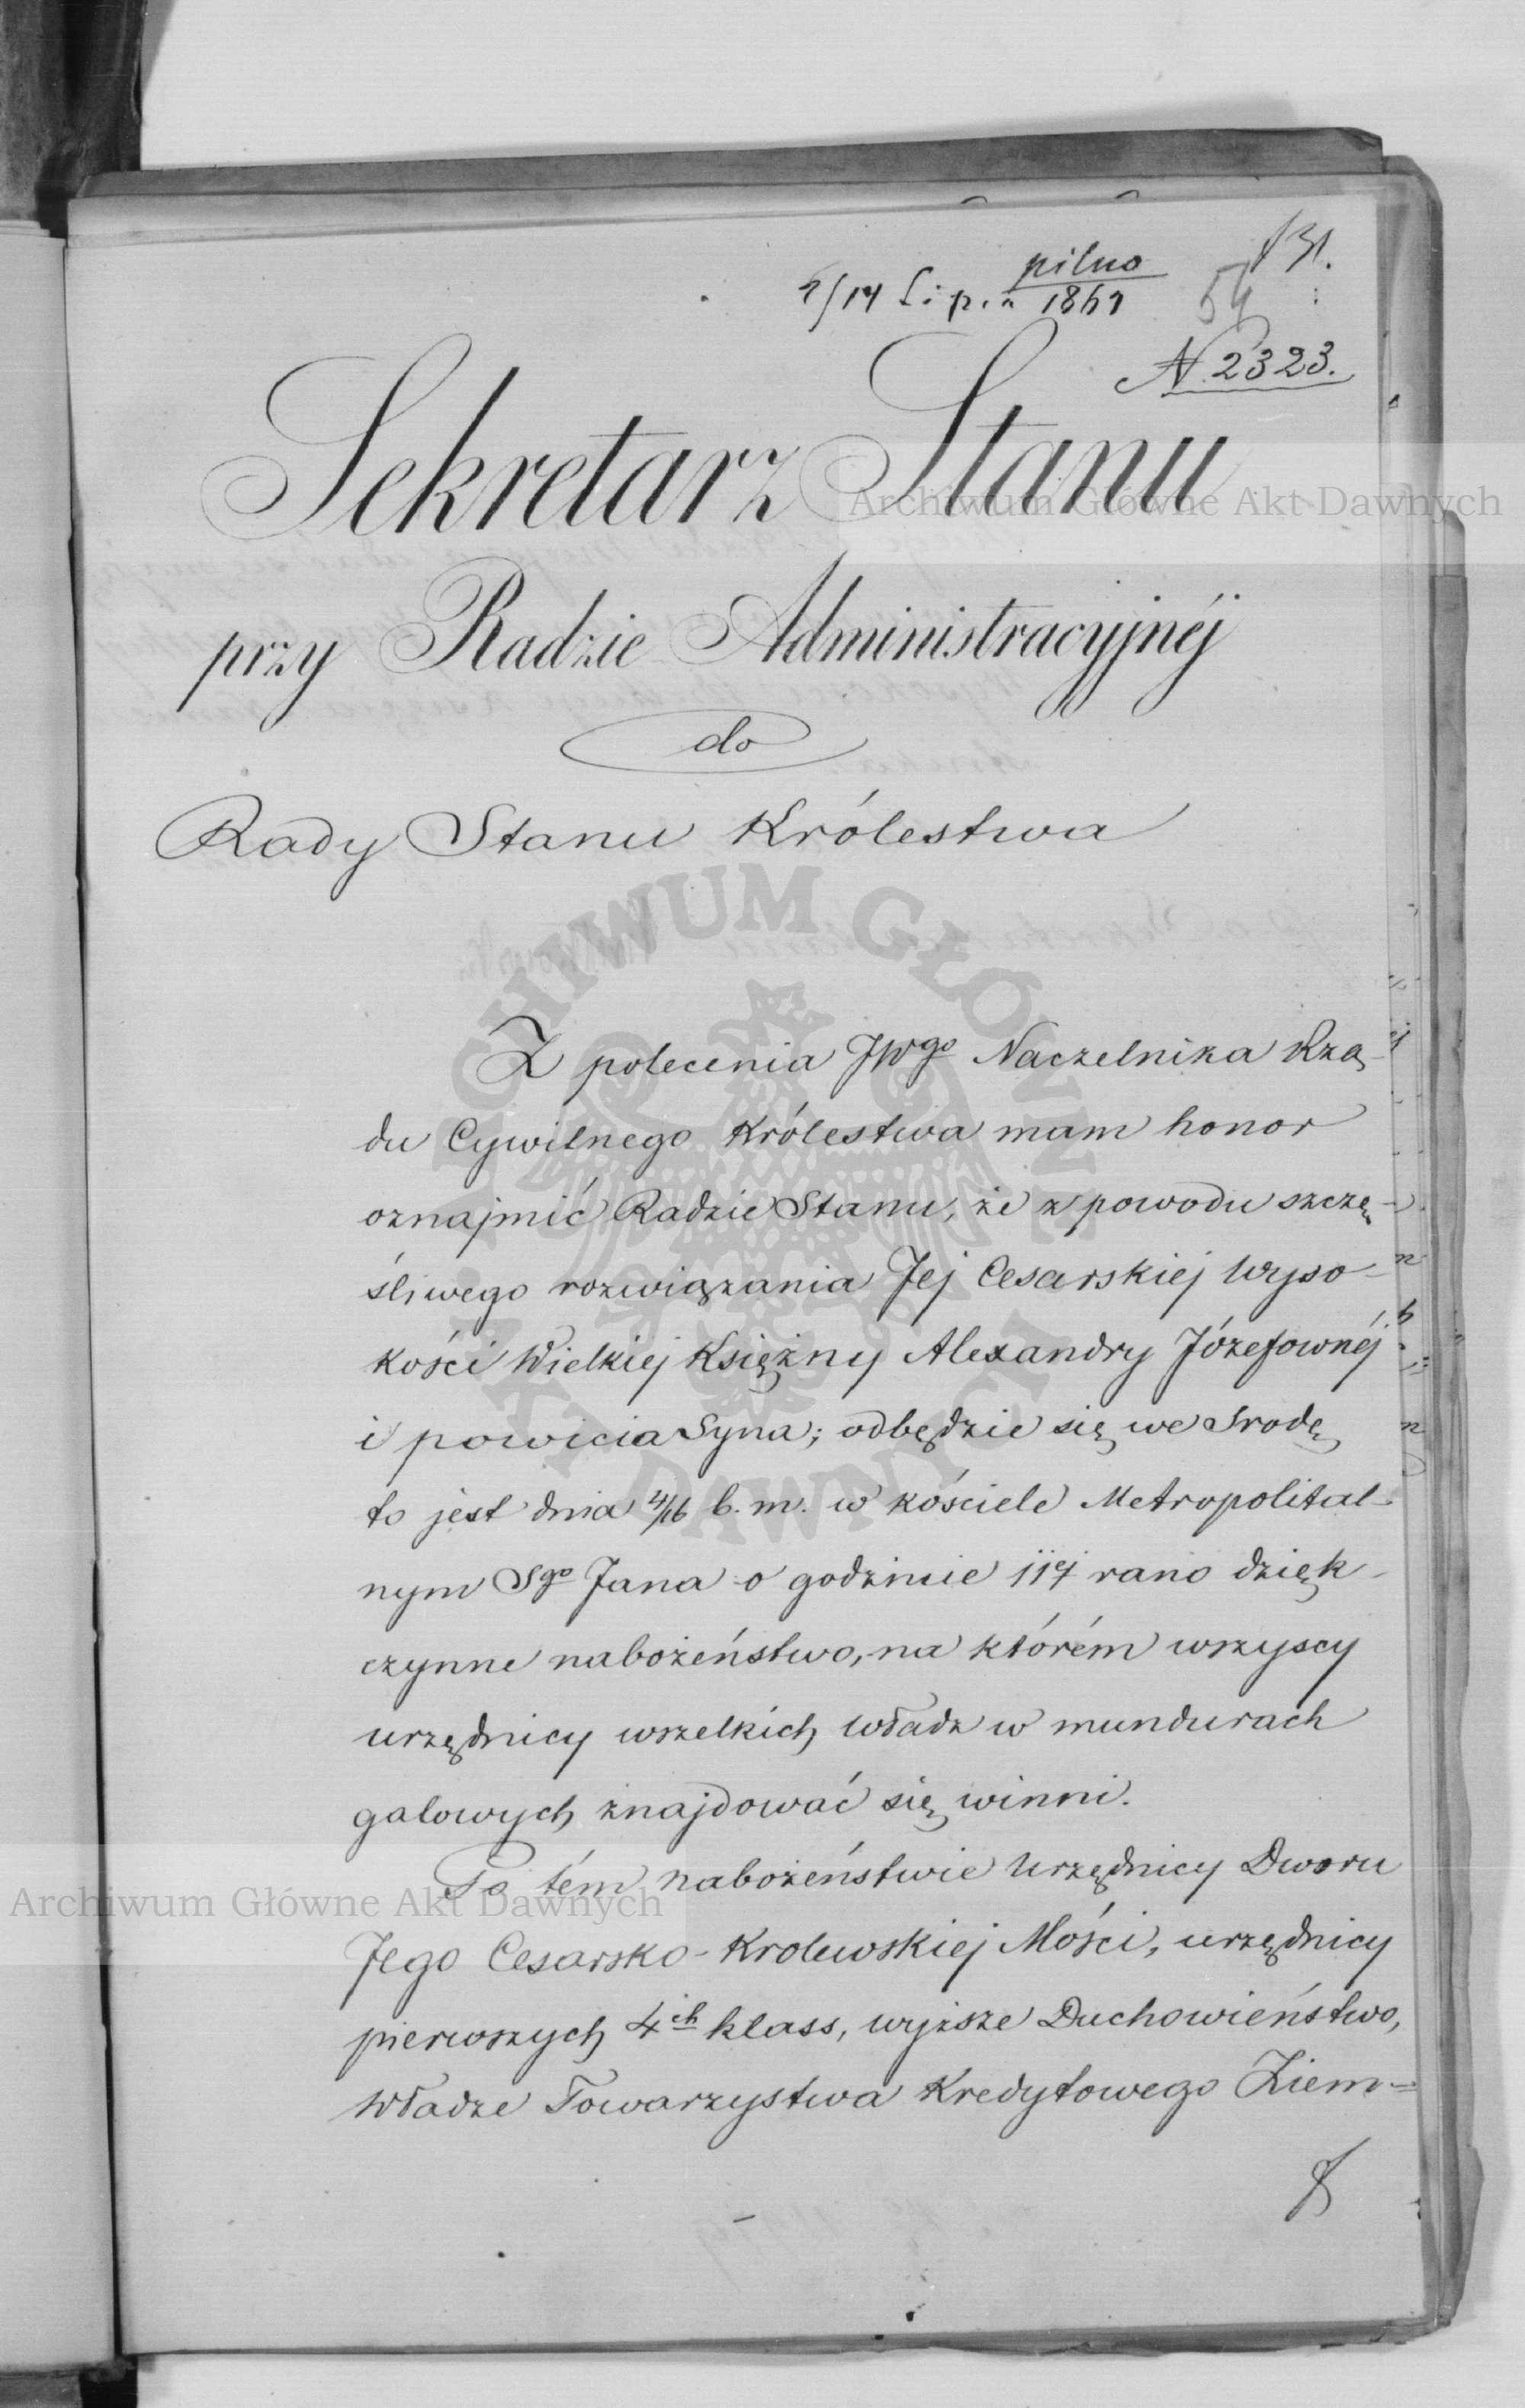 pilno
131.
2/14 Lipca 1862
54
N. 2323.
Sekretarz Stanu
przy Radzie Administracyjnéj
do
Rady Stanu Królestwa
Z polecenia JWgo Naczelnika Rzą-
du Cywilnego Królestwa mam honor
oznajmić Radzie Stanu, że z powodu szczę-
śliwego rozwiązania Jej Cesarskiej Wyso-
kości Wielkiej Księżny Alexandry Józefownéj
i powicia Syna; odbędzie się we Srodę
to jest dnia 4/16 b. m. w kościele Metropolital-
nym Sgo Jana o godzinie 11ej rano dzięk-
czynne nabożeństwo, na którém wszyscy
urzędnicy wszelkich władz w mundurach
galowych znajdować się winni.
Po tém nabożeństwie Urzędnicy Dworu
Jego Cesarsko-Krolewskiej Mości, urzędnicy
pierwszych 4ch klass, wyższe Duchowieństwo,
Władze Towarzystwa Kredytowego Ziem-
Archiwum Główne Akt Dawnych
ARCHIWUM GŁÓWNE AKT DAWNYCH
Archiwum Główne Akt Dawnych